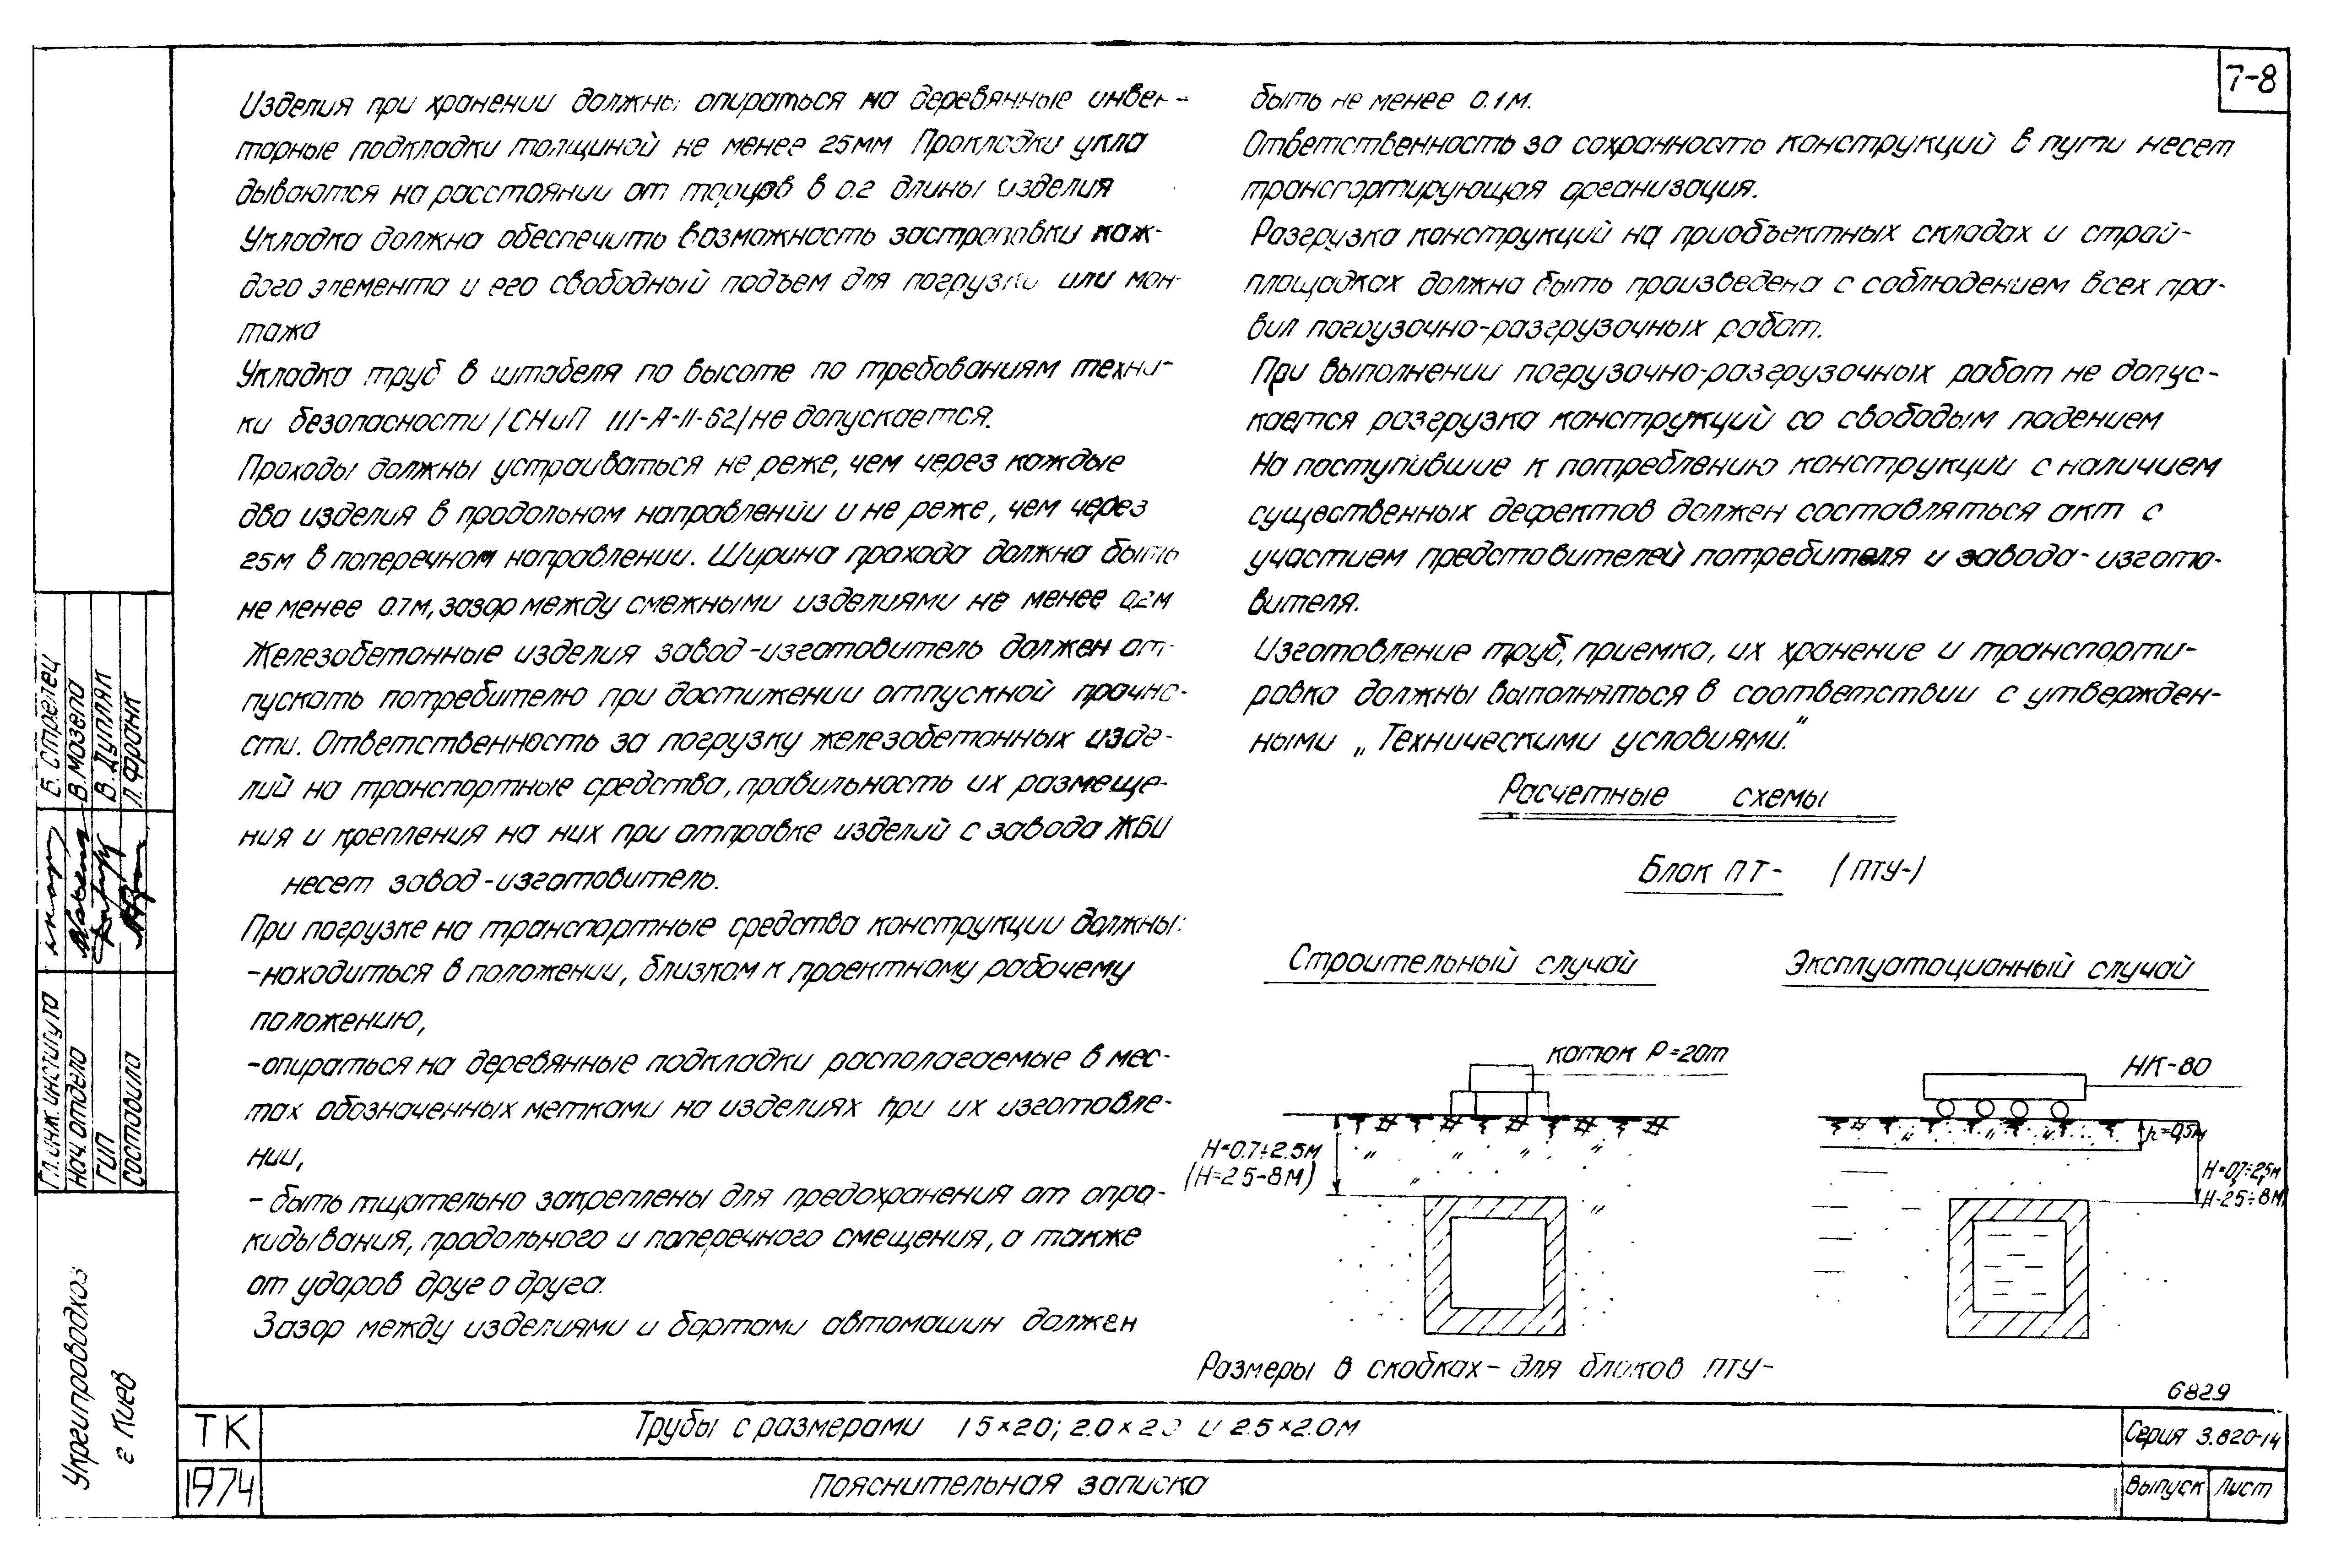 7-8
Изделия при хранении должны опираться на деревянные инвен-
тарные подкладки толщиной не менее 25мм Прокладки укла
дываются на расстоянии от торцов в 0.2 длины изделия
Укладка должна обеспечить возможность застроповки каж-
дого элемента и его свободный подъем для погрузки или мон-
тажа
Укладка труб в штабеля по высоте по требованиям техни-
ки безопасности /СНиП III-А-II-62/ не допускается.
Проходы должны устраиваться не реже, чем через каждые
два изделия в продольном направлении и не реже, чем через
25м в поперечном направлении. Ширина прохода должна быть
не менее 0.7м, зазор между смежными изделиями не менее 0,2м
Железобетонные изделия завод-изготовитель должен от-
пускать потребителю при достижении отпускной прочно-
сти. Ответственность за погрузку железобетонных изде-
лий на транспортные средства, правильность их размеще-
ния и крепления на них при отправке изделий с завода ЖБИ
несет завод-изготовитель.
При погрузке на транспортные средства конструкции должны:
-находиться в положении, близком к проектному рабочему
положению,
-опираться на деревянные подкладки располагаемые в мес-
тах обозначенных метками на изделиях при их изготовле-
нии,
- быть тщательно закреплены для предохранения от опро-
кидывания, продольного и поперечного смещения, а также
от ударов друг о друга.
Зазор между изделиями и бортами автомашин должен
быть не менее 0.1м.
Ответственность за сохранность конструкций в пути несет
транспортирующая организация.
Разгрузка конструкций на приобъектных складах и строй-
площадках должна быть произведена с соблюдением всех пра-
вил погрузочно-разгрузочных работ.
При выполнении погрузочно-разгрузочных работ не допус-
кается разгрузка конструкций со свободым падением
На поступившие к потреблению конструкции с наличием
существенных дефектов должен составляться акт с
участием представителей потребителя и завода-изгото-
вителя.
Изготовление труб, приемка, их хранение и транспорти-
ровка должны выполняться в соответствии с утвержден-
ными „Техническими условиями."
Расчетные схемы
Блок ПТ- (ПТУ-)
Строительный случай
Эксплуатационный случай
каток Р=20т
Н=0.7÷2.5м
(Н=25-8м)
НК-80
h=0,5м
Н=0,7÷2,5м
(Н-2.5÷8м)
Размеры в скобках - для блоков ПТУ-
6829
ТК
Трубы с размерами 15×20; 2.0×2.0 и 2.5×2.0м
Серия 3.820-14
1974
Пояснительная записка
Выпуск
Лист
Гл.инж.института
Б. Стрелец
Нач. отдела
В. Мазепа
ГИП
В. Дупляк
Составила
Л. Франк
Укргипроводхоз
г Киев